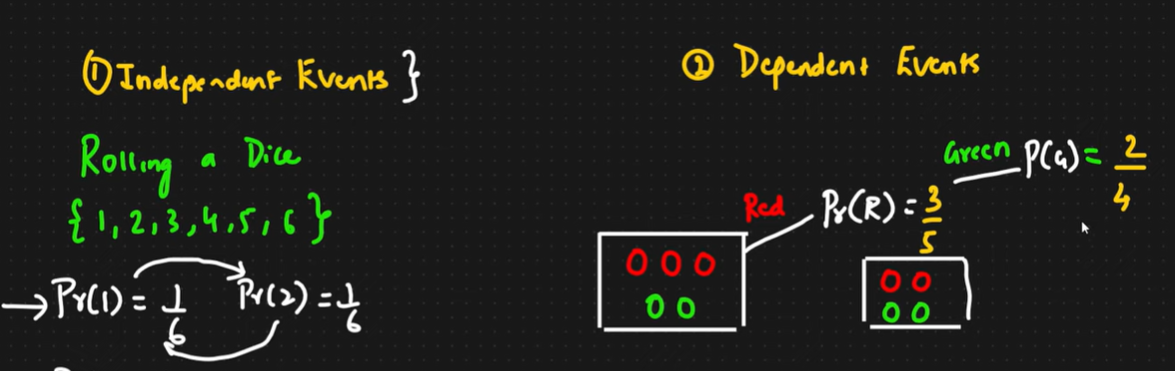 ① Independent Events }
Rolling a Dice
{ 1, 2, 3, 4, 5, 6 }
→ Pr(1) = 1/6 Pr(2) = 1/6
② Dependent Events
Green P(G) = 2/4
Red Pr(R) = 3/5